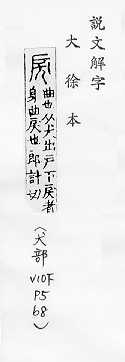 說文解字
大徐本
戾
曲也从犬出戶下戾者
身曲戾也郎計切
(犬部
V10下
P5
b8)